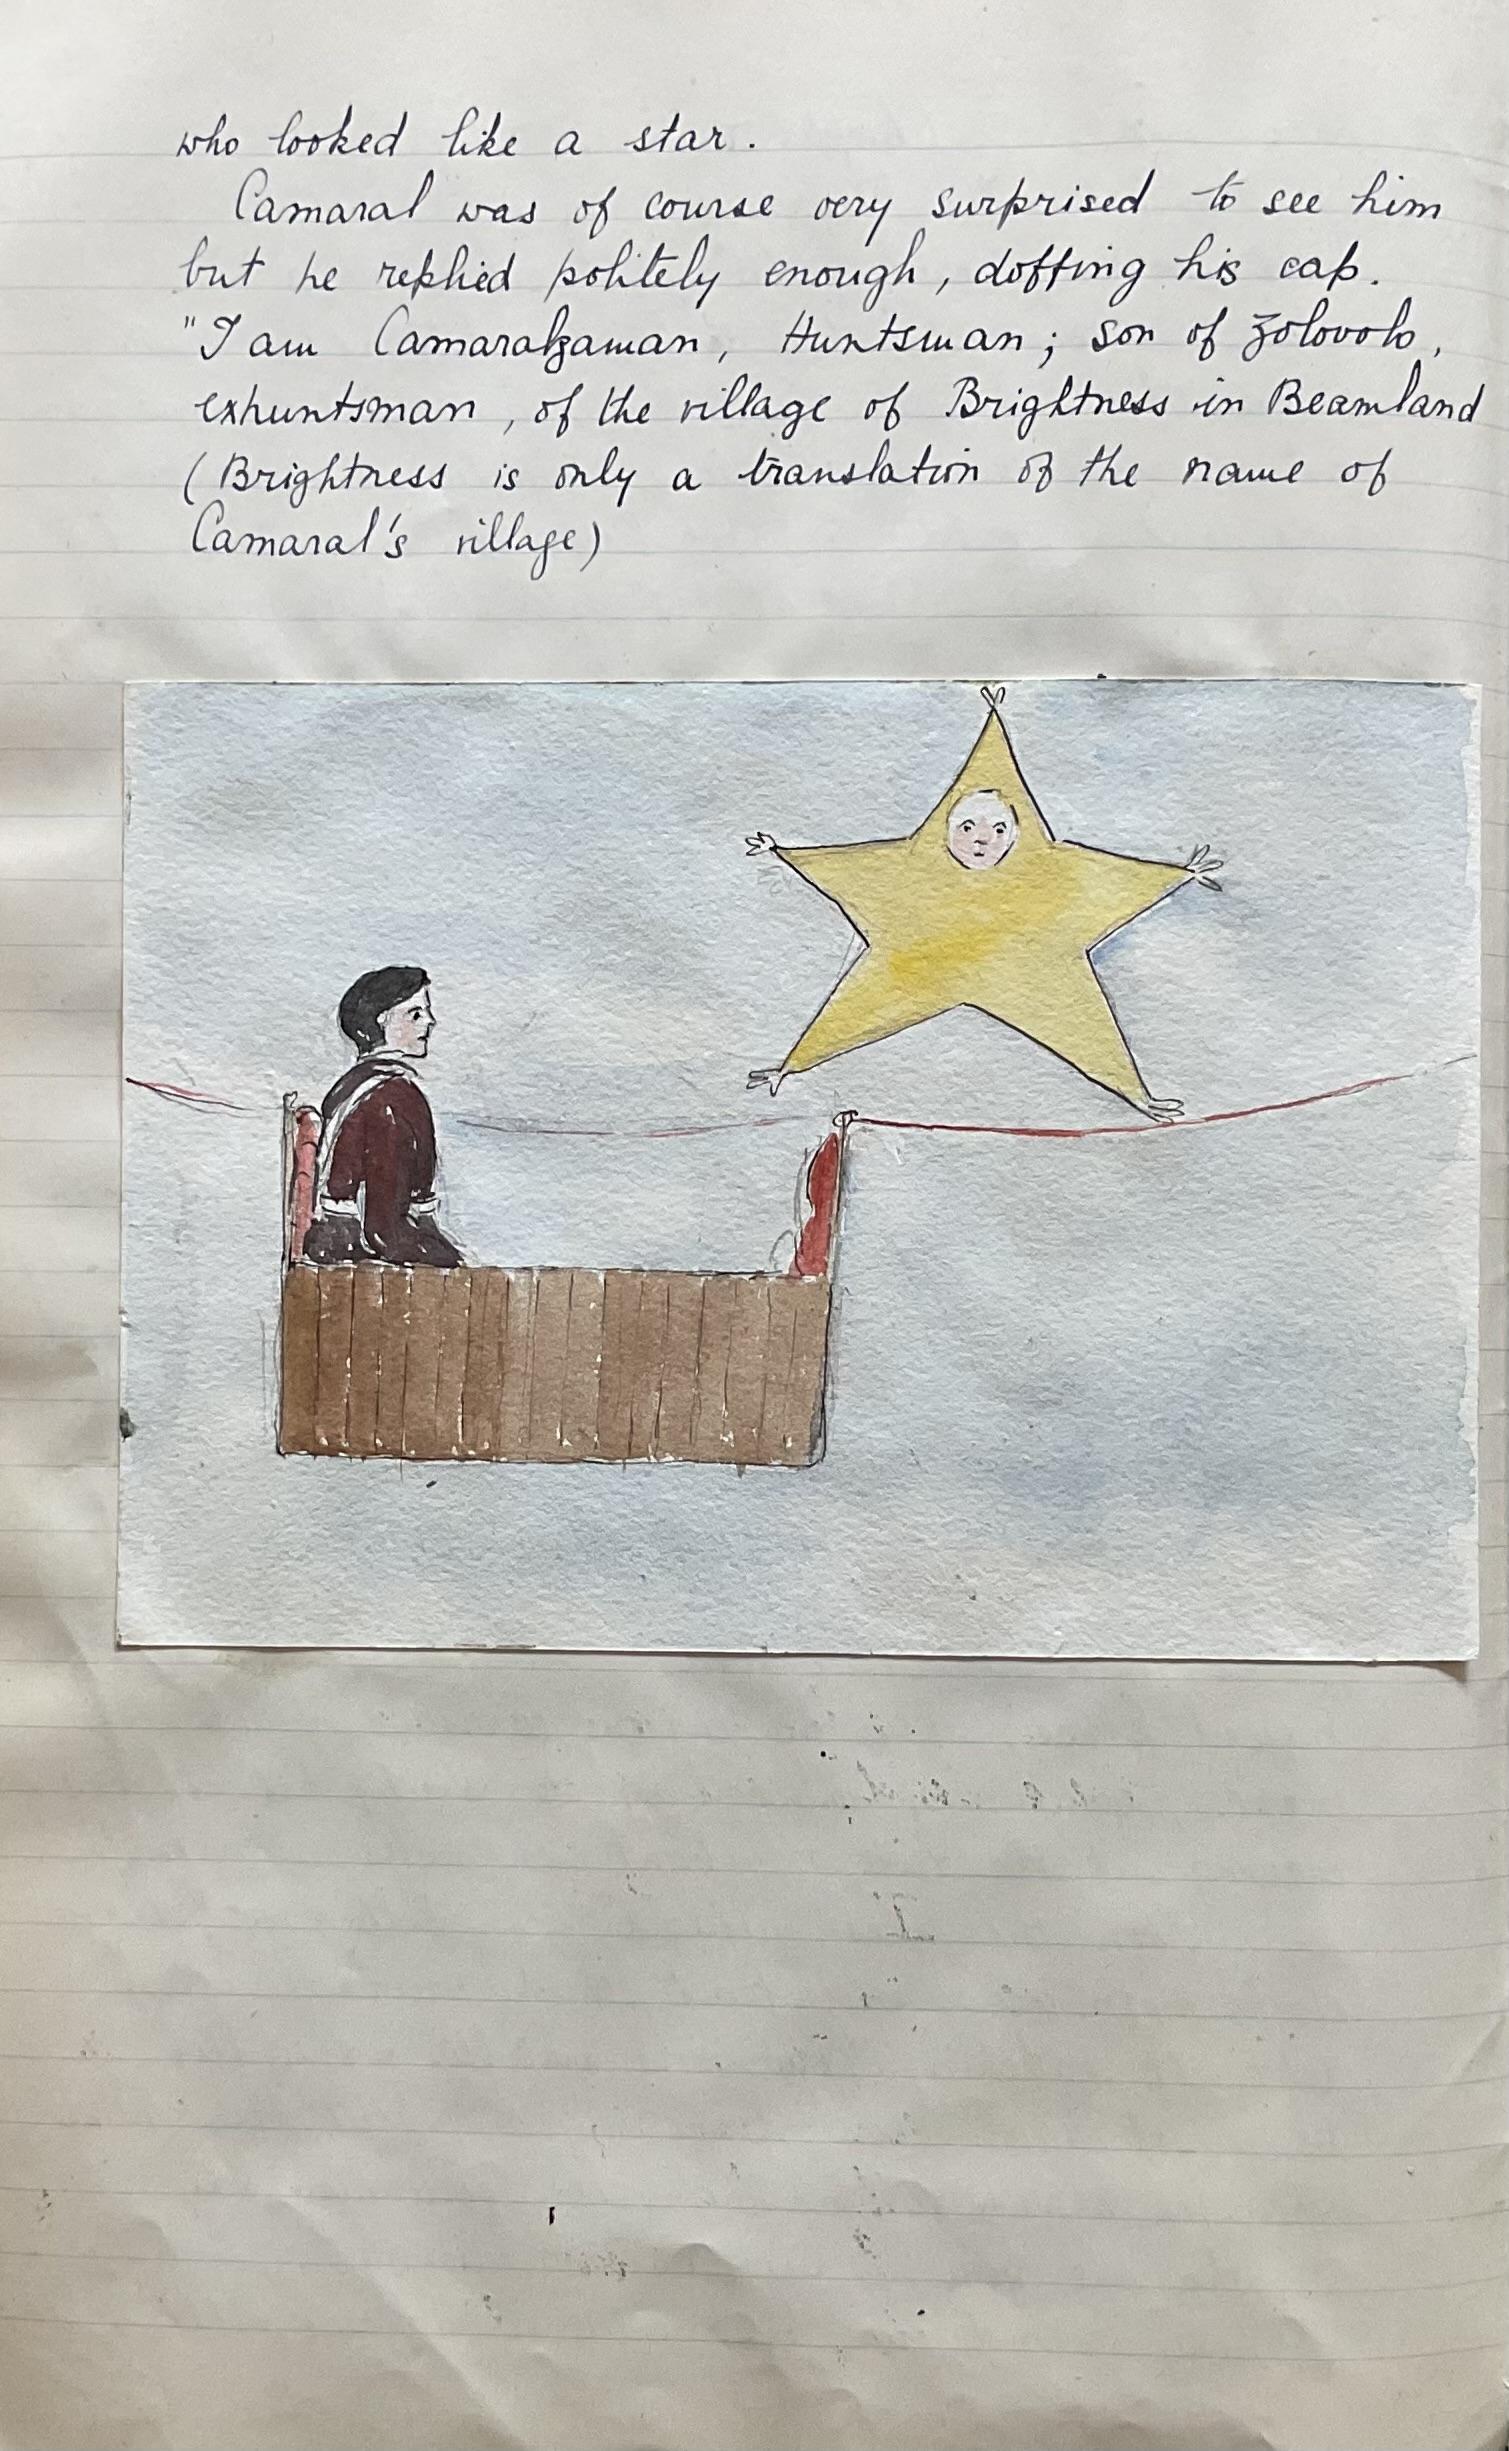 who looked like a star.
Camaral was of course very surprised to see him
but he replied politely enough, doffing his cap.
"I am Camaralzaman, Huntsman; son of Zolovolo,
exhuntsman, of the village of Brightness in Beamland
(Brightness is only a translation of the name of
Camaral's village)